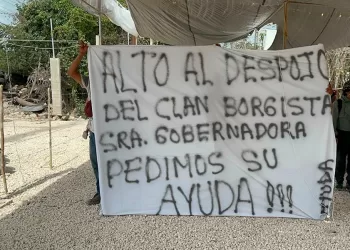 ALTO AL DESPOJO
DEL CLAN BORGISTA
SRA. GOBERNADORA
PEDIMOS SU
AYUDA !!!